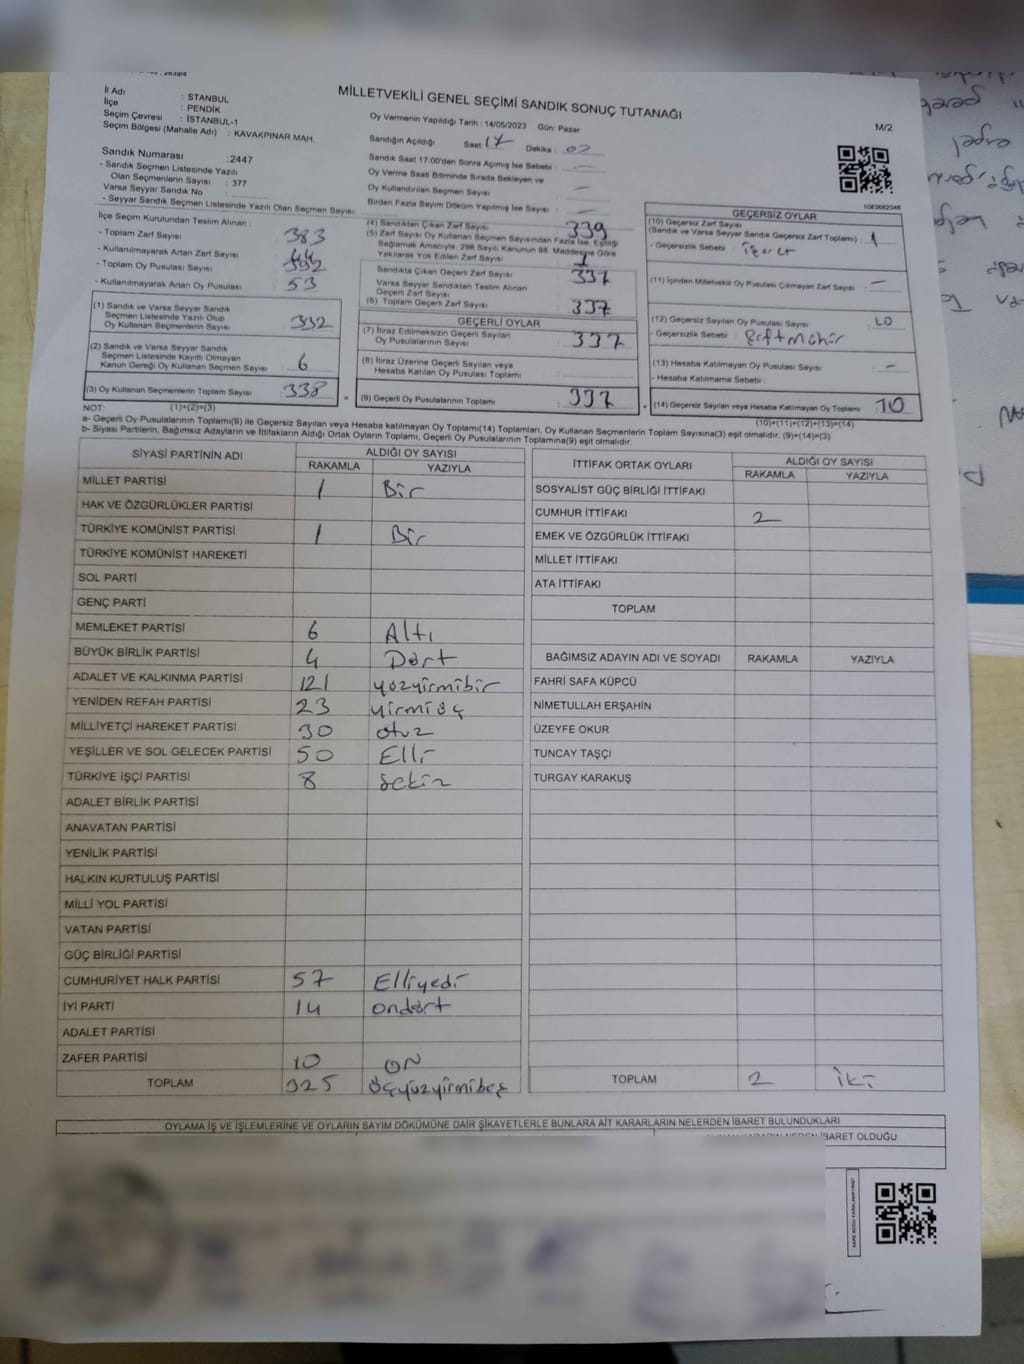 MİLLETVEKİLİ GENEL SEÇİMİ SANDIK SONUÇ TUTANAĞI
M/2
İl Adı : STANBUL
İlçe : PENDİK
Seçim Çevresi : İSTANBUL-1
Seçim Bölgesi (Mahalle Adı) : KAVAKPINAR MAH.
Oy Vermenin Yapıldığı Tarih : 14/05/2023 Gün: Pazar
Sandığın Açıldığı Saat 17 Dakika : 02
Sandık Saat 17:00'den Sonra Açılmış İse Sebebi : —
Oy Verme Saati Bitiminde Sırada Bekleyen ve
Oy Kullandırılan Seçmen Sayısı : —
Birden Fazla Sayım Döküm Yapılmış İse Sayısı : —
Sandık Numarası : 2447
- Sandık Seçmen Listesinde Yazılı
Olan Seçmenlerin Sayısı : 377
Varsa Seyyar Sandık No :
- Seyyar Sandık Seçmen Listesinde Yazılı Olan Seçmen Sayısı :
İlçe Seçim Kurulundan Teslim Alınan :
- Toplam Zarf Sayısı : 383
- Kullanılmayarak Artan Zarf Sayısı : 44
- Toplam Oy Pusulası Sayısı :
- Kullanılmayarak Artan Oy Pusulası : 53
(1) Sandık ve Varsa Seyyar Sandık
Seçmen Listesinde Yazılı Olup
Oy Kullanan Seçmenlerin Sayısı : 332
(2) Sandık ve Varsa Seyyar Sandık
Seçmen Listesinde Kayıtlı Olmayan
Kanun Gereği Oy Kullanan Seçmen Sayısı : 6
(3) Oy Kullanan Seçmenlerin Toplam Sayısı : 338
(1)+(2)=(3)
(4) Sandıktan Çıkan Zarf Sayısı : 339
(5) Zarf Sayısı Oy Kullanan Seçmen Sayısından Fazla İse, Eşitliği
Sağlamak Amacıyla, 298 Sayılı Kanunun 98. Maddesine Göre
Yakılarak Yok Edilen Zarf Sayısı : 1
Sandıkta Çıkan Geçerli Zarf Sayısı : 337
Varsa Seyyar Sandıktan Teslim Alınan
Geçerli Zarf Sayısı :
(6) Toplam Geçerli Zarf Sayısı : 337
GEÇERLİ OYLAR
(7) İtiraz Edilmeksizin Geçerli Sayılan
Oy Pusulalarının Sayısı : 337
(8) İtiraz Üzerine Geçerli Sayılan veya
Hesaba Katılan Oy Pusulası Toplamı :
= (9) Geçerli Oy Pusulalarının Toplamı : 337
1083682046
GEÇERSİZ OYLAR
(10) Geçersiz Zarf Sayısı
(Sandık ve Varsa Seyyar Sandık Geçersiz Zarf Toplamı) : 1
- Geçersizlik Sebebi : işaret
(11) İçinden Milletvekili Oy Pusulası Çıkmayan Zarf Sayısı : —
(12) Geçersiz Sayılan Oy Pusulası Sayısı : 10
- Geçersizlik Sebebi : Çift Mühür
(13) Hesaba Katılmayan Oy Pusulası Sayısı : —
- Hesaba Katılmama Sebebi :
+ (14) Geçersiz Sayılan veya Hesaba Katılmayan Oy Toplamı : 10
(10)+(11)+(12)+(13)=(14)
NOT:
a- Geçerli Oy Pusulaları Toplamı(9) ile Geçersiz Sayılan veya Hesaba katılmayan Oy Toplamı(14) Toplamları, Oy Kullanan Seçmenlerin Toplam Sayısına(3) eşit olmalıdır. (9)+(14)=(3)
b- Siyasi Partilerin, Bağımsız Adayların ve İttifakların Aldığı Ortak Oyların Toplamı, Geçerli Oy Pusulalarının Toplamına(9) eşit olmalıdır.
SİYASİ PARTİNİN ADI ALDIĞI OY SAYISI
RAKAMLA YAZIYLA
MİLLET PARTİSİ 1 Bir
HAK VE ÖZGÜRLÜKLER PARTİSİ
TÜRKİYE KOMÜNİST PARTİSİ 1 Bir
TÜRKİYE KOMÜNİST HAREKETİ
SOL PARTİ
GENÇ PARTİ
MEMLEKET PARTİSİ 6 Altı
BÜYÜK BİRLİK PARTİSİ 4 Dört
ADALET VE KALKINMA PARTİSİ 121 yüzyirmibir
YENİDEN REFAH PARTİSİ 23 yirmiüç
MİLLİYETÇİ HAREKET PARTİSİ 30 otuz
YEŞİLLER VE SOL GELECEK PARTİSİ 50 Elli
TÜRKİYE İŞÇİ PARTİSİ 8 Sekiz
ADALET BİRLİK PARTİSİ
ANAVATAN PARTİSİ
YENİLİK PARTİSİ
HALKIN KURTULUŞ PARTİSİ
MİLLİ YOL PARTİSİ
VATAN PARTİSİ
GÜÇ BİRLİĞİ PARTİSİ
CUMHURİYET HALK PARTİSİ 57 Elliyedi
İYİ PARTİ 14 ondört
ADALET PARTİSİ
ZAFER PARTİSİ 10 ON
TOPLAM 325 üçyüzyirmibeş
İTTİFAK ORTAK OYLARI ALDIĞI OY SAYISI
RAKAMLA YAZIYLA
SOSYALİST GÜÇ BİRLİĞİ İTTİFAKI
CUMHUR İTTİFAKI 2
EMEK VE ÖZGÜRLÜK İTTİFAKI
MİLLET İTTİFAKI
ATA İTTİFAKI
TOPLAM
BAĞIMSIZ ADAYIN ADI VE SOYADI RAKAMLA YAZIYLA
FAHRİ SAFA KÜPCÜ
NİMETULLAH ERŞAHİN
ÜZEYFE OKUR
TUNCAY TAŞÇI
TURGAY KARAKUŞ
TOPLAM 2 iki
OYLAMA İŞ VE İŞLEMLERİNE VE OYLARIN SAYIM DÖKÜMÜNE DAİR ŞİKAYETLERLE BUNLARA AİT KARARLARIN NELERDEN İBARET BULUNDUKLARI
İBARET OLDUĞU